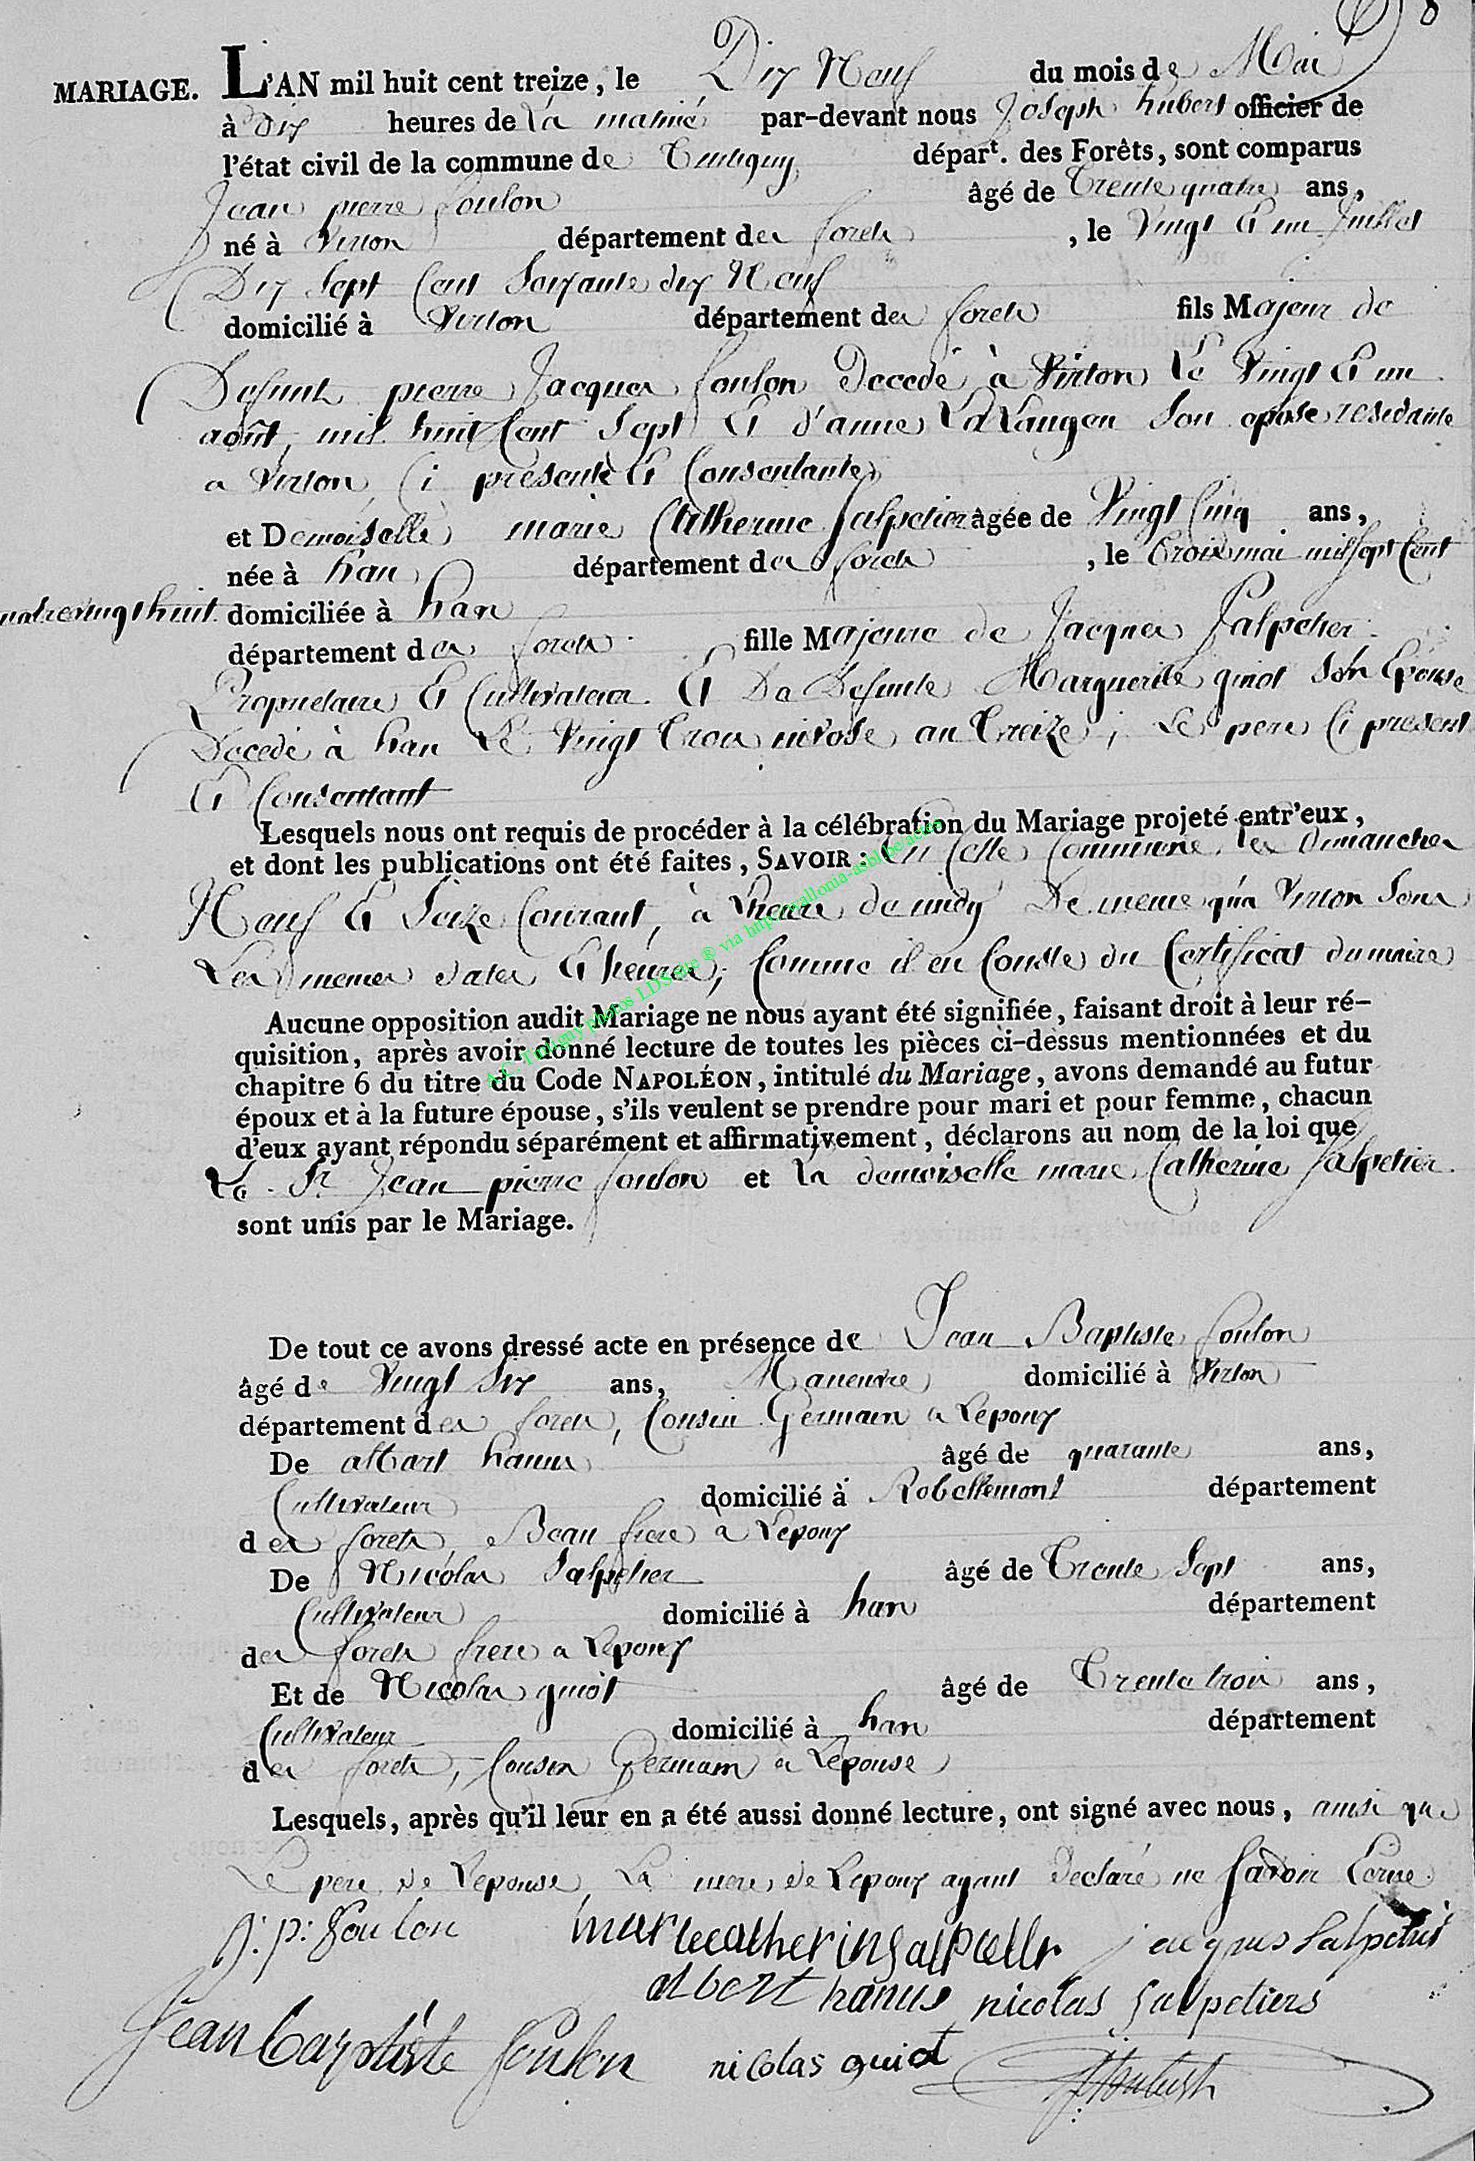 8
MARIAGE. L'AN mil huit cent treize, le Dix Neuf du mois de Mai
à dix heures de la matiné par-devant nous Joseph hubert officier de
l'état civil de la commune de Tintigny,épart. des Forêts, sont comparus
Jean pierre foulon âgé de Trente quatre ans,
né à Virton département des forets, le Vingt Et un Juillet
Dix Sept Cent Soixante dix Neuf
domicilié à Virton département des forets fils Majeur de
Defunt pierre Jacques foulon Decedé à Virton Le Vingt Et un
août, mil huit Cent Sept Et d'anne son epose residante
a Virton, Ci presente Et Consentante
et Demoiselle marie Catherine Salpetier âgée de Vingt Cinq ans,
née à han département des forets, le Trois mai mil sept Cent
quatrevingt huit. domiciliée à han
département des forets fille Majeure de Jacques Salpetier
Propriétaire Et Cultivateur Et De Defunte Marguerite guiot Son Epouse
Decedé à han Le Vingt Trois nivose an Treize, Le pere Ci present
Et Consentant
Lesquels nous ont requis de procéder à la célébration du Mariage projeté entr'eux,
et dont les publications ont été faites, SAVOIR: En Cette Commune, les dimanches
Neuf Et Seize Courant, à l'heure de midy De meme qu'a Virton Sous
Les memes dates Et heures, Comme il en Conste du Certificat du maire
Aucune opposition audit Mariage ne nous ayant été signifiée, faisant droit à leur ré-
quisition, après avoir donné lecture de toutes les pièces ci-dessus mentionnées et du
chapitre 6 du titre du Code NAPOLÉON, intitulé du Mariage, avons demandé au futur
époux et à la future épouse, s'ils veulent se prendre pour mari et pour femme, chacun
d'eux ayant répondu séparément et affirmativement, déclarons au nom de la loi que
Le Sr Jean pierre foulon et la demoiselle marie Catherine Salpetier
sont unis par le Mariage.
De tout ce avons dressé acte en présence de Jean Baptiste foulon
âgé de Vingt Six ans, Maneuvre domicilié à Virton
département des forets, Cousin Germain a Lepoux
De albart hanus âgé de quarante ans,
Cultivateur domicilié à Robellemont département
des forets, Beau frere à Lepoux
De Nicolas Salpetier âgé de Trente Sept ans,
Cultivateur domicilié à han département
des forets frere a Lepoux
Et de Nicolas guiot âgé de Trente trois ans,
Cultivateur domicilié à han département
des forets, Cousin Germain a Lepouse
Lesquels, après qu'il leur en a été aussi donné lecture, ont signé avec nous, ainsi que
Le pere de Lepouse, La mere de Lepoux ayant declaré ne Savoir Ecrire
J: p: foulon jacques Salpetier
albert hanus nicolas Salpetiers
Jean baptiste foulon nicolas guiot
A.C. Tintigny photos LDS site ® via http://wallonia-asbl.be/actes